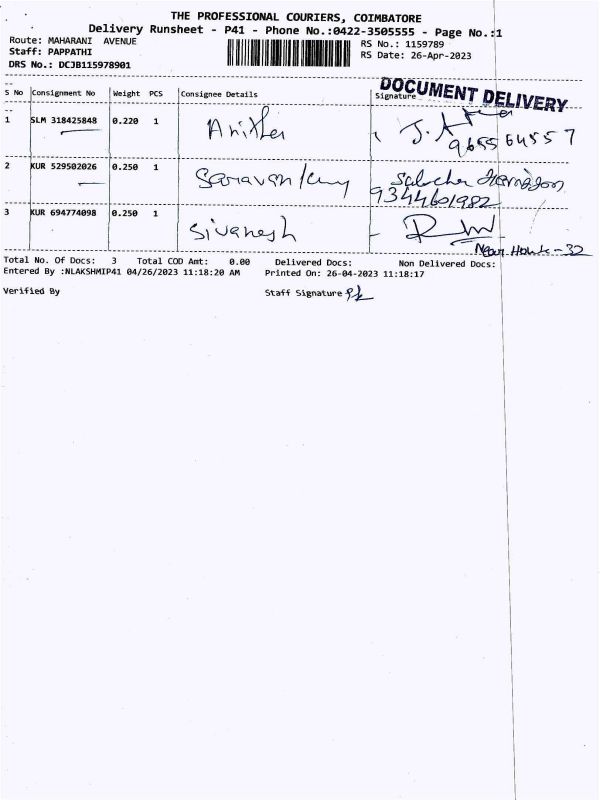 THE PROFESSIONAL COURIERS, COIMBATORE
Delivery Runsheet - P41 - Phone No.:0422-3505555 - Page No.:1
Route: MAHARANI AVENUE
RS No.: 1159789
Staff: PAPPATHI
RS Date: 26-Apr-2023
DRS No.: DCJB115978901
DOCUMENT DELIVERY
S No Consignment No Weight PCS Consignee Details Signature
1 SLM 318425848 0.220 1 Anitha J.
2 KUR 529502026 0.250 1
9344601982
3 KUR 694774098 0.250 1 Sivanesh
Near House-32
Total No. Of Docs: 3 Total COD Amt: 0.00 Delivered Docs: Non Delivered Docs:
Entered By :NLAKSHMIP41 04/26/2023 11:18:20 AM Printed On: 26-04-2023 11:18:17
Verified By Staff Signature